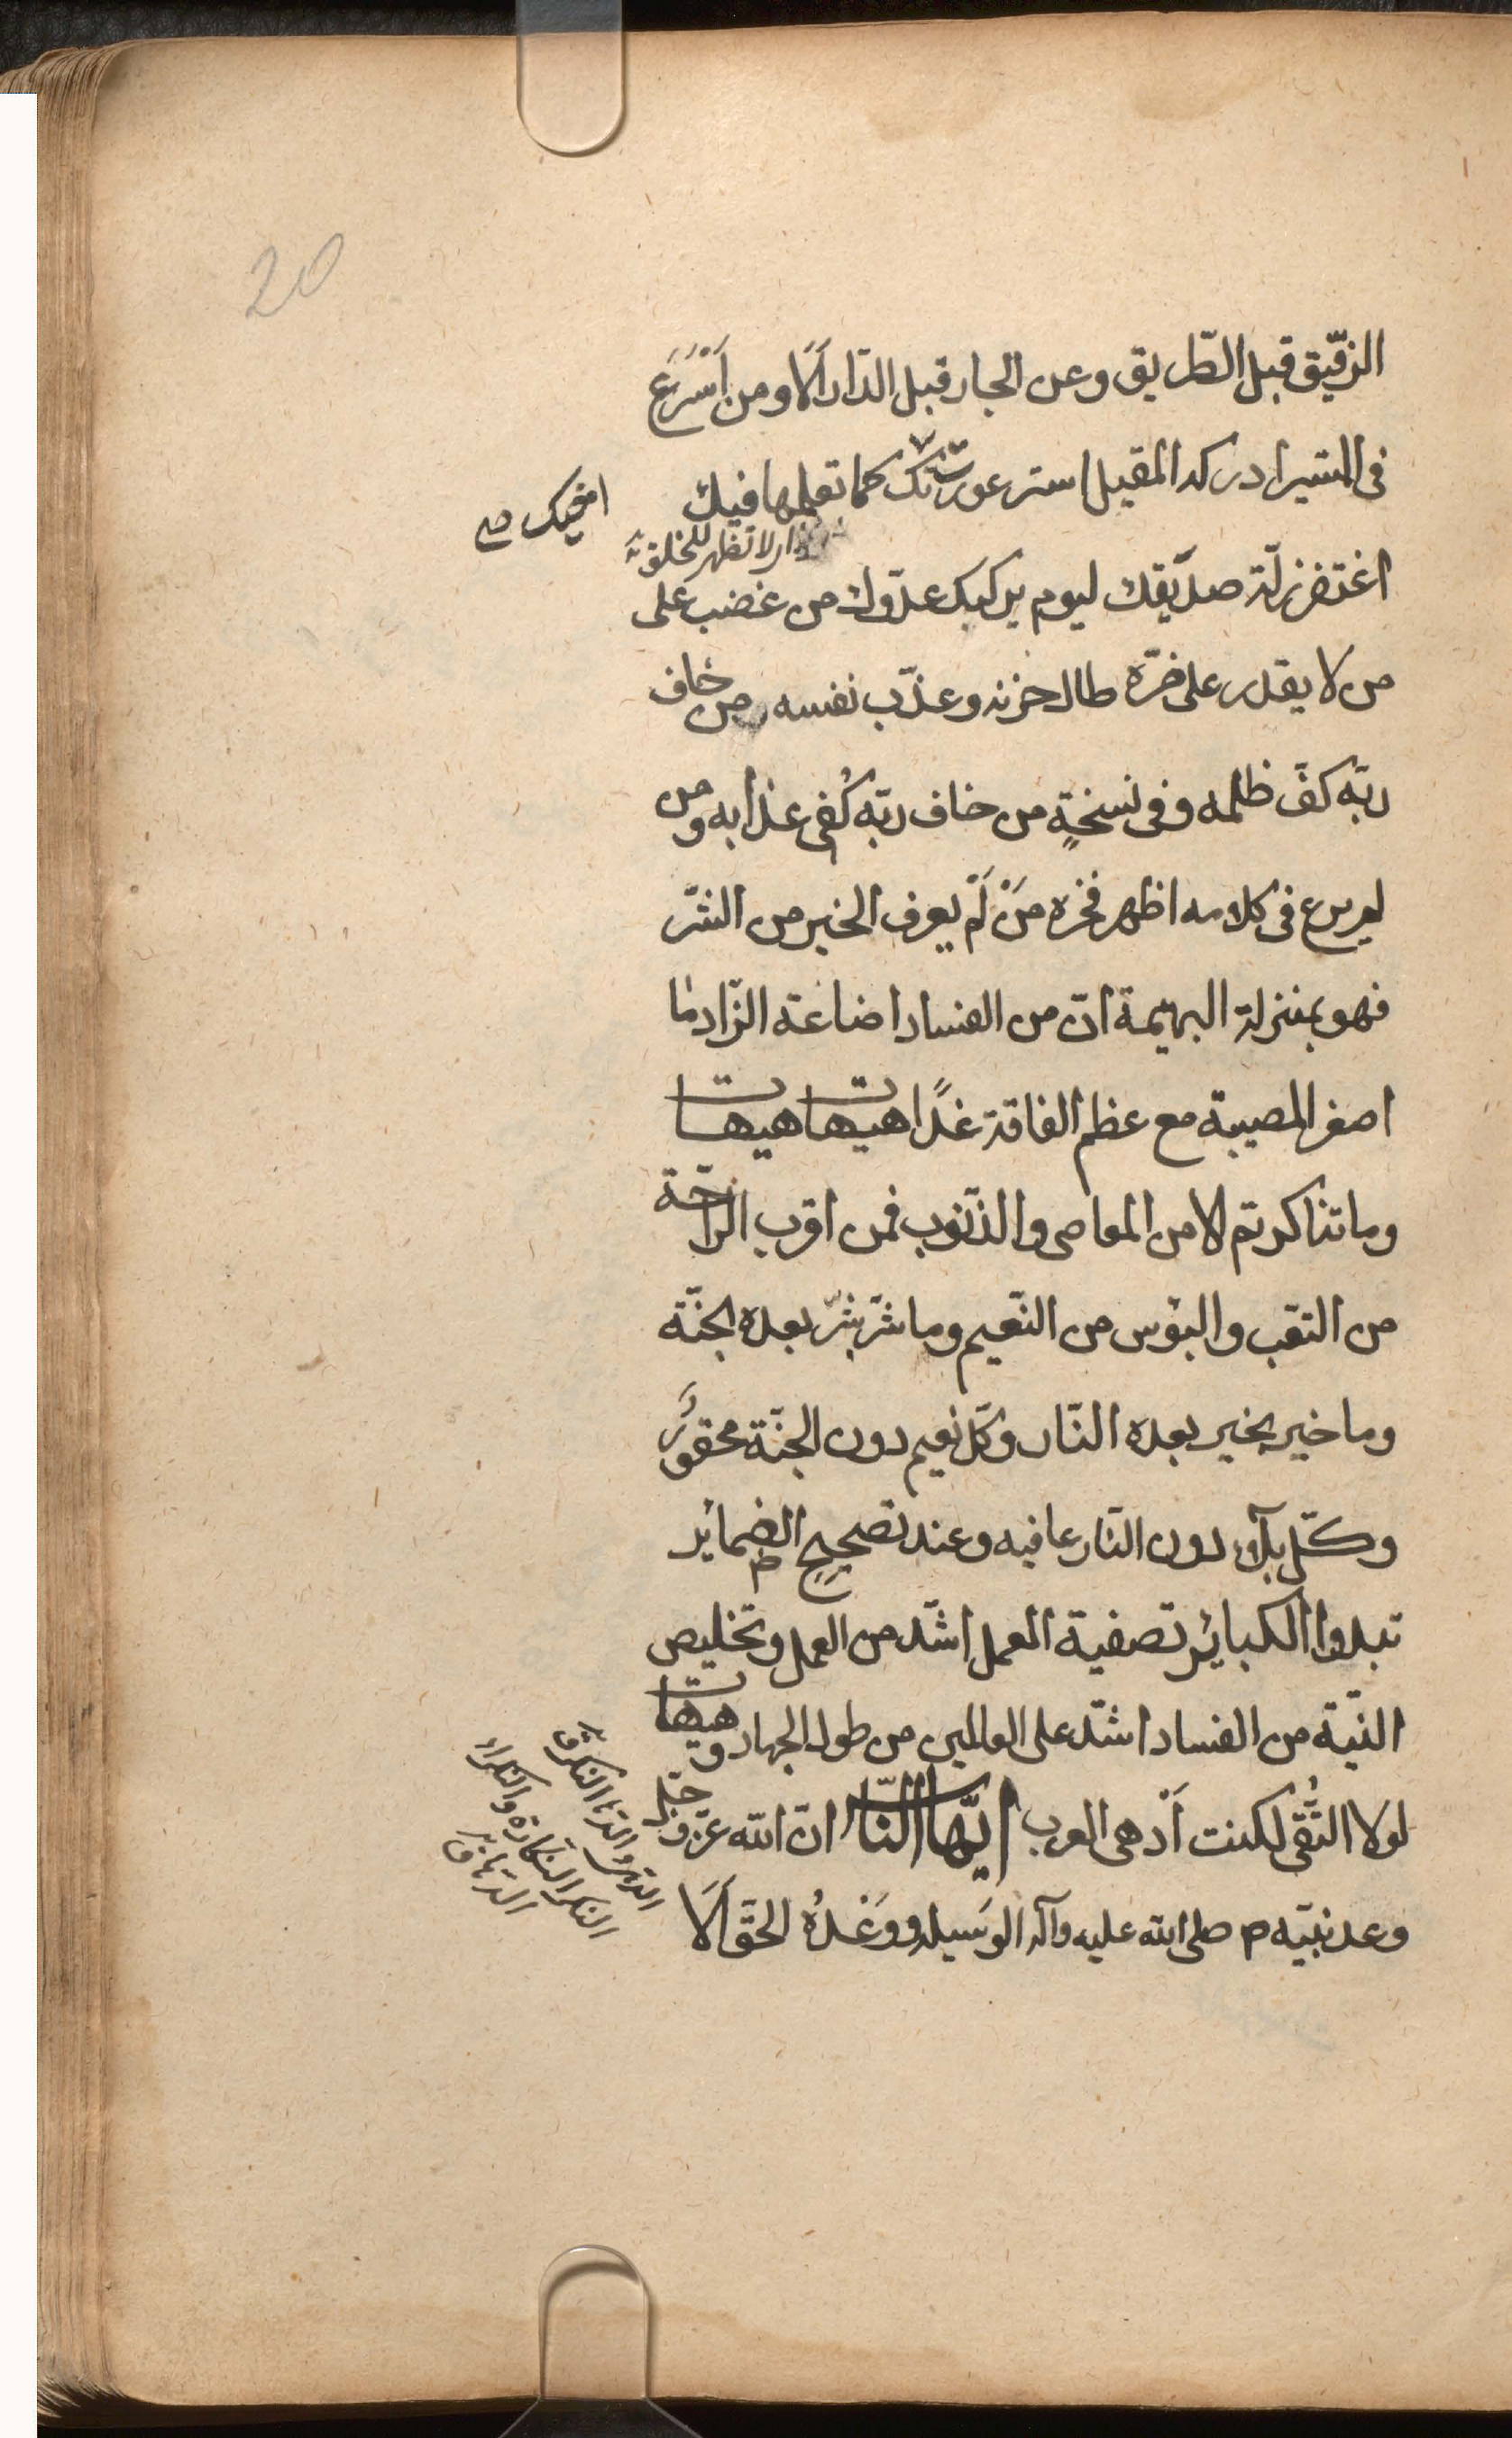 20
الرّفيق قبل الطّريق وعن الجار قبل الدّار اَلَا ومن اَسْرَعَ
فى المسير ادركه المقيل استر عورت اخيك كما تعلمها فيك
اخيك صح
لا تظهر للخلق
اغتفر زلّة صدّيقك ليوم يركبك عدّوك من غضب على
من لا يقدر على ضرّه طال حزنه وعذّب نفسه من خاف
ربّه كفّ ظلمه وفى نسخةٍ من خاف ربّه كُفى عذابه ومن
لم يرع فى كلامه اظهر فخره مَنْ لَمْ يعرف الخير من الشّر
فهو بمنزلة البهيمة انّ من الفساد اضاعة الزّاد ما
اصغر المصيبة مع عظم الفاقة غدًا هيهات هيهات
وما تناكرتم الا من المعاصى والذّنوب فمن اقرب الرّاحة
من التّعب والبؤس من النّعيم وما شرّ بشرّ بعده الجنّة
وما خير بخير بعده النّار وكلّ نعيم دون الجنّة محقورٌ
وكلّ بلآء دون النّار عافيه وعند تصحيح الضمائر
تبدوا الكبائر تصفية العمل اشدّ من العمل وتخليص
النّية من الفساد اشدّ على العالمين من طول الجهاد وهيهات
لولا التُّقى لكنت اَدهى العرب ايّها النّاس انّ الله عزّ وجلّ
وعد نبيّه م صلى الله عليه وآله الوَسيله ووَعْدُهُ الحقّ اَلَا
الدهى والدّهآء النكر ق
النكر النكارة والنكراء
الدّهآء ق